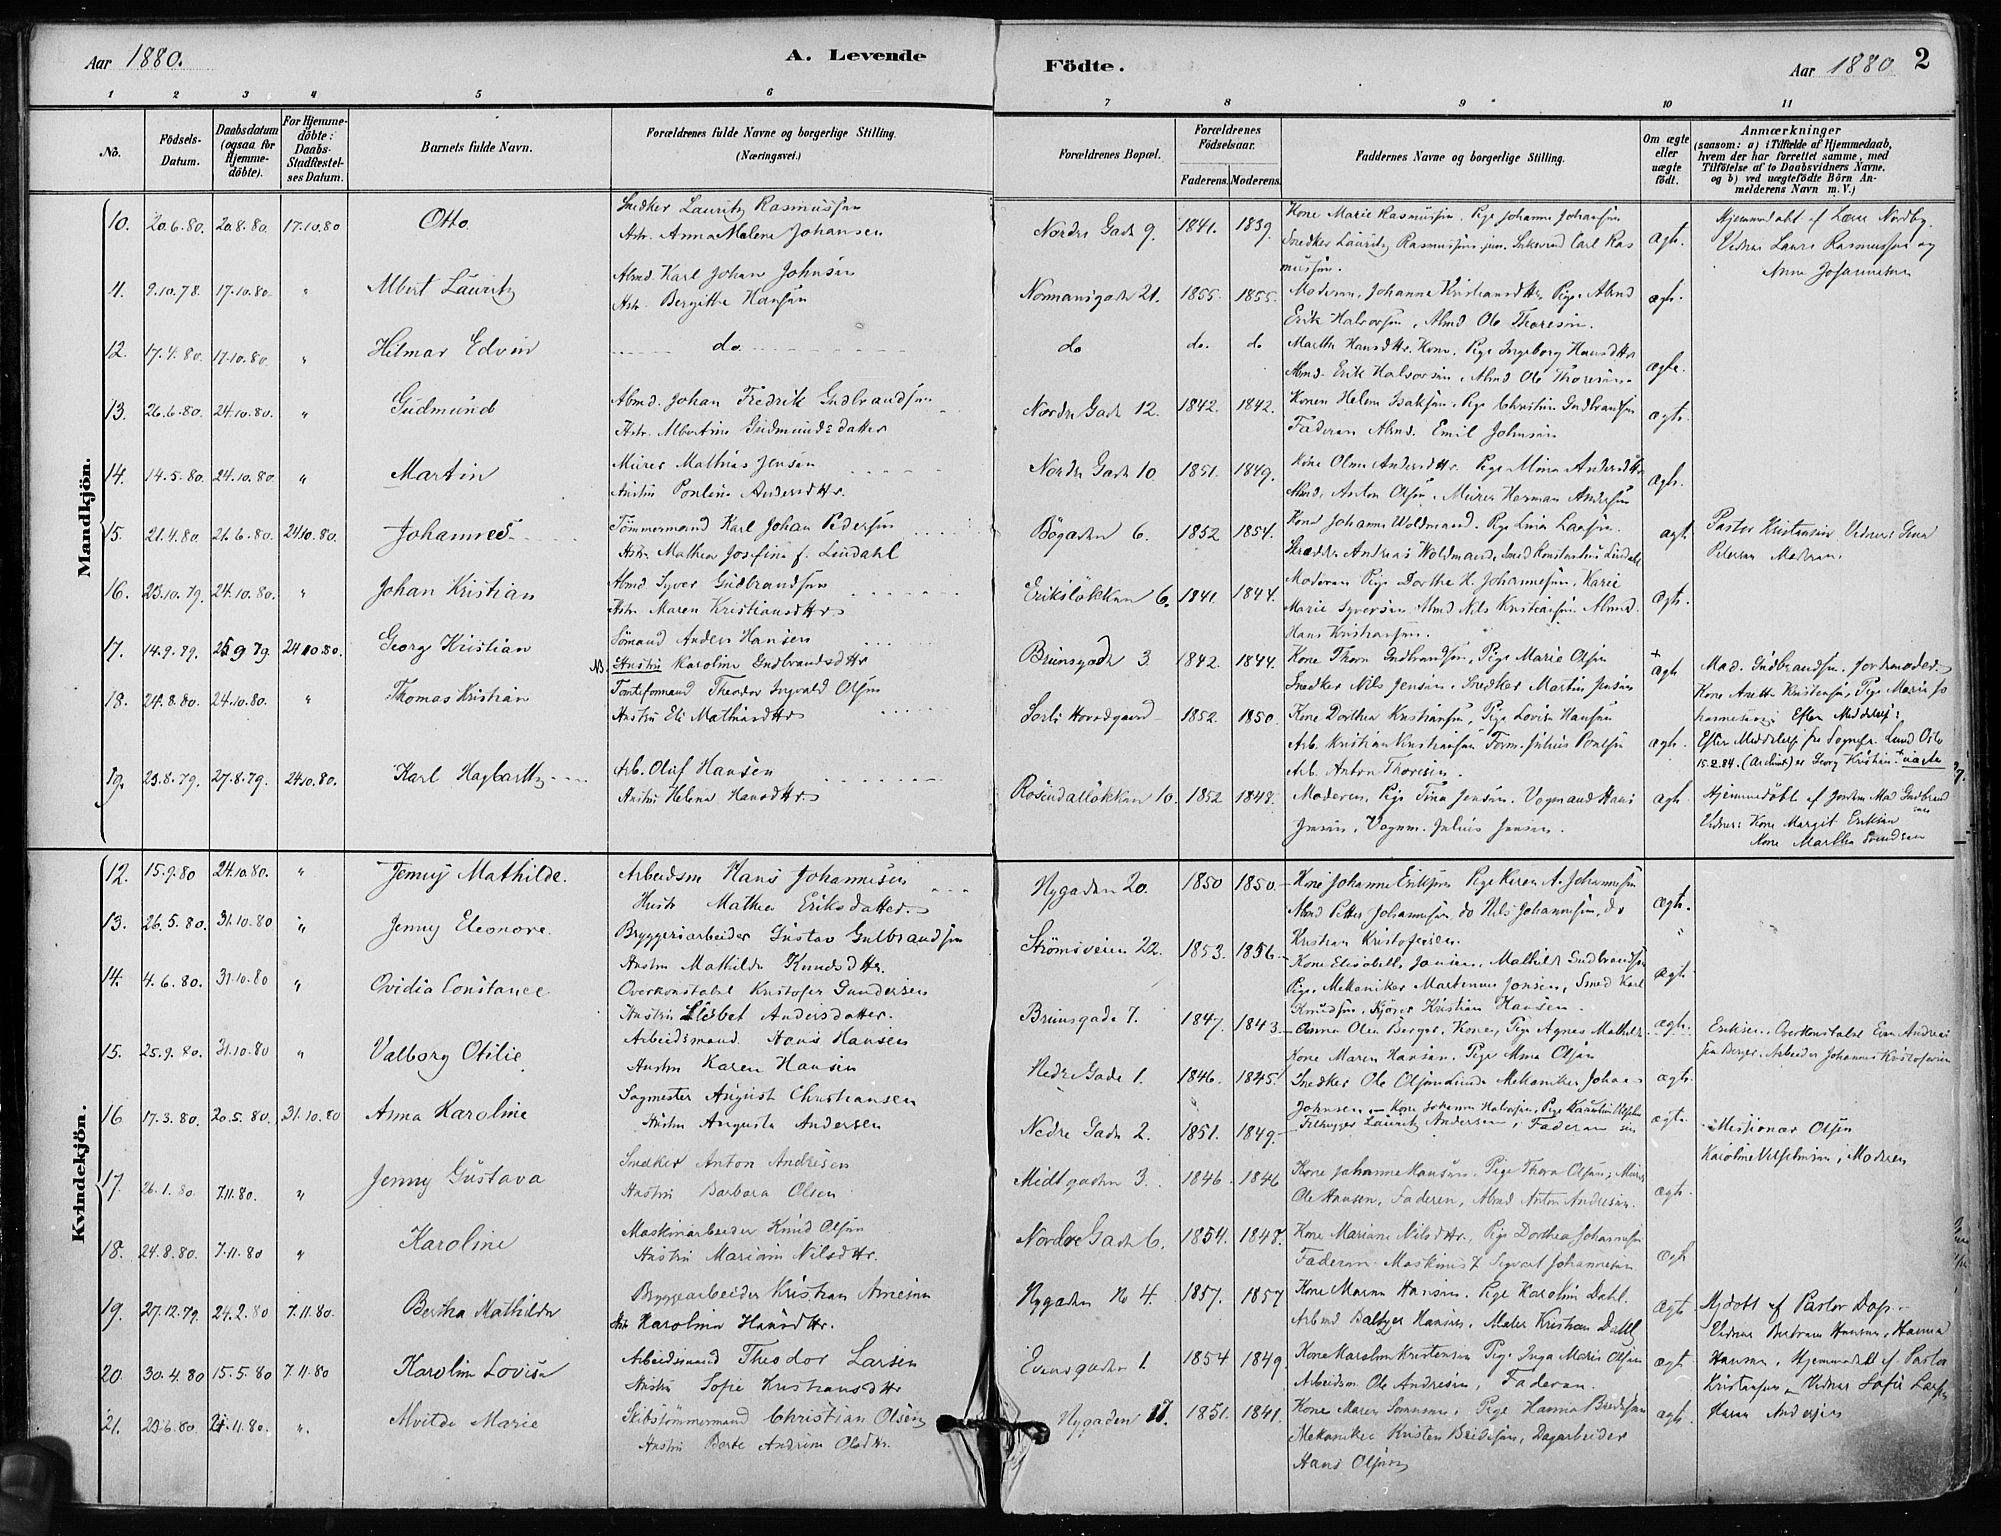 Aar 1880. A. Levende Födte. Aar 1880 2
1 2 3 4 5 6 7 8 9 10 11
No. Födsels-Datum. Daabsdatum (ogsaa for Hjemme-döbte). For Hjemme-döbte: Daabs-Stadfæstel-ses Datum. Barnets fulde Navn. Forældrenes fulde Navne og borgerlige Stilling. (Næringsvei.) Forældrenes Bopæl. Forældrenes Födselsaar. Faderens. Moderens. Faddernes Navne og borgerlige Stilling. Om ægte eller uægte födt. Anmærkninger (saasom: a) i Tilfælde af Hjemmedaab, hvem der har forrettet samme, med Tilföielse af to Daabsvidners Navne, og b) ved uægtefödte Börn An-melderens Navn m. V.)
Mandkjön.
10. 20.6.80. 20.8.80. 17.10.80 Otto Snedker Lauritz Rasmussen
Hstr. Anna Malene Johansen Nordre Gade 9. 1841. 1839. Kone Marie Rasmussen, Pige Johanne Johansen
Snedker Lauritz Rasmussen jun. Carl Ras
mussen. ægte. Hjemmedøbt af Lærer Nordby.
Vidner Laura Rasmussen og
Anne Johannesen
11. 9.10.78. 17.10.80. " Albert Lauritz Abmd. Karl Johan Johnsen
Hstr. Bergithe Hansen Normansgade 21. 1855. 1855. Moderen, Johanne Kristiansdttr. Pige. Abmd
Erik Halvorsen, Abmd Ole Thoresen. ægte.
12. 17.4.80. 17.10.80. " Hilmar Edvin do. do do. do Marthe Hansdttr. Kone, Pige Ingeborg Hansdttr
Abmd. Erik Halvorsen, Abmd Ole Thoresen. ægte.
13. 26.6.80. 24.10.80. " Gudmund Abmd. Johan Fredrik Gudbrandsen
Hstr. Albertine Gudmundsdatter Nordre Gade 12. 1842. 1842. Konen Helene Isaksen, Pige Christine Gudbrandsen
Faderen Abmd. Emil Johnsen ægte.
14. 14.5.80 24.10.80. " Martin Murer Mathias Jensen
Hustru Pauline Andersdttr. Nordre Gade 10 1851. 1849. Kone Olina Andersdttr. Pige Mina Andersdttr
Abmd. Anton Olsen. Murer Herman Andersen ægte.
15. 21.4.80 21.6.80 24.10.80. Johannes Tömmermand Karl Johan Pedersen
Hstr. Mathea Josefine f. Lindahl Bögaden 6. 1852 1854. Kone Johanne Woldmand. Pige Lina Larsen.
Skrædder Andreas Woldmand, Smed Konstantius Lindahl ægte. Pastor Kristiansen Vidner: Gina
Petersen Moderen.
16. 23.10.79. 24.10.80. " Johan Kristian Abmd Syver Gudbrandsen
Hstr. Maren Kristiansdttr Erikslökken 6. 1841. 1844. Moderen Pige Dorthe H. Johannesen, Karie
Marie Syversen Abmd Nils Kristiansen Abmd.
Hans Kristiansen. ægte.
17. 14.9.79. 25 9 79. 24 10.80. Georg Kristian Sömand Anders Hansen
NB. Hustru Karoline Gudbrandsdttr Brunsgade 3. 1842. 1844. Kone Thora Gudbrandsen, Pige Marie Olsen
Snedker Nils Jensen, Snedker Martin Jensen + ægte Mad. Gudbrandsen, Jordemoder.
Kone Anette Kristensen, Pige Marie Jo
hannesen.
18. 24.8.80. 24.10.80. " Thomas Kristian Theodor Ingvald Olsen
Hustru Eli Mathiasdttr Sorli Hovedgaard 1852. 1850. Kone Dorthea Kristiansen, Pige Lovise Hansen
Arb. Kristian Kristiansen Form. Julius Poulsen
Arb. Anton Thoresen. ægte. Efter Meddelelse fra Sognepr. Lund Oslo
15.2.84. er Georg Kristian + uægte
19. 23.8.79. 27.8.79. 24.10.80. Karl Hagbarth Arb. Oluf Hansen
Hustru Helena Hansdttr. Rosendallökken 10. 1852 1848. Moderen, Pige Tina Jensen, Vognmand Hans
Jensen, Vognm. Julius Jensen. ægte. Hjemmedöbt af Jordem. Mad Gudbrand
sen Vidner: Kone Margit Eriksen
Kone Marthe Svendsen
Kvindekjön.
12. 15.9.80 24.10.80. " Jenny Mathilde. Arbeidsm Hans Johannesen
Hustr Mathea Eriksdatter. Nygaden 20. 1850 1850. Kone Johanne Eriksen Pige Karen A. Johannesen
Abmd Petter Johannesen, do Nils Johannesen, do
Kristian Kristofersen. ægte.
13. 26.5.80. 31.10.80 " Jenny Eleonore. Bryggeriarbeider Gustav Gulbrandsen
Hustru Mathilde Knudsdttr. Strömsveien 22. 1853. 1856. Kone Elisabeth Jansen, Mathilde Gudbrandsen
Pige, Mekaniker Martinius Jansen, Smed Karl
Knudsen, Kjörer Kristian Hansen. ægte.
14. 4.6.80. 31.10.80 " Ovidia Constance Overkonstabel Kristofer Gundersen
Hustru Lisbet Andersdatter. Brunsgade 7. 1847. 1843. Anna Olea Berger, Kone, Pige Agnes Mathilde ægte. Eriksen, Overkonstabel Even Andrea
sen Berger, Arbeider Johannes Kristofersen
15. 25.9.80. 31.10.80 " Valborg Otilie. Arbeidsmand. Hans Hansen
Hustru Karen Hansen Nedre Gade 1. 1846. 1845. Kone Maren Hansen, Pige Mina Olsen
Snedker Ole Olsen Lunde Mekaniker Johan
Johnsen. ægte.
16 17.3.80. 20.5.80. 31.10.80 Anna Karoline Sagmester August Christiansen
Hustru Augusta Andersen Nedre Gade 2. 1851. 1849. Kone Johanne Halvorsen, Pige Karoline Vilhelm
sen Filhugger Lauritz Andersen, Faderen ægte. Missionær Olsen
Karoline Vilhelmsen, Moderen
17. 26.1.80. 7.11.80. " Jenny Gustava Snedker Anton Andresen
Hustru Barbara Olsen Midtgaden 3. 1846. 1846 Kone Johanne Hansen. Pige Thora Olsen, Murer
Ole Hansen, Faderen, Abmd Anton Andresen. ægte.
18. 24.8.80. 7.11.80 " Karoline Maskinarbeider Knud Olsen
Hustru Mariane Nilsdttr. Nordre Gade 6. 1854. 1848. Kone Mariane Nilsdttr., Pige Dorthea Johannesen
Faderen. Maskinist Sigvart Johannesen ægte
19. 27.12.79. 24.2.80 7.11.80. Bertha Mathilde Bryggearbeider Kristian Arnesen
Hstr Karoline Hansdttr. Nygaden No 4. 1857. 1857 Kone Maren Hansen, Pige Karoline Dahl.
Arbmd Baltzer Hansen, Maler Kristian Dahl ægte Hjdöbt af Pastor Dop
Vidner Bertram Hansen, Hanna
Hansen.
20. 30.4.80 15.5.80 7.11.80 Karoline Lovise Arbeidsmand Theodor Larsen
Hustru Sofie Kristiansdttr Evensgaden 1. 1854 1849 Kone Karoline Kristensen Pige Inga Marie Olsen
Arbeidsm Ole Andresen, Faderen. ægte Hjemmedöbt af Pastor
Kristiansen Vidner Sofie Larsen
Karen Andersen
21. 23.6.80 21.11.80. " Alvilde Marie Skibstömmermand Christian Olsen
Hustru Berte Andrine Olsdttr. Nygaden 17. 1851. 1841. Kone Maren Pige Hanna Bredesen
Mekaniker Kristen Bredesen, Dagarbeider
Hans Olsen ægte.